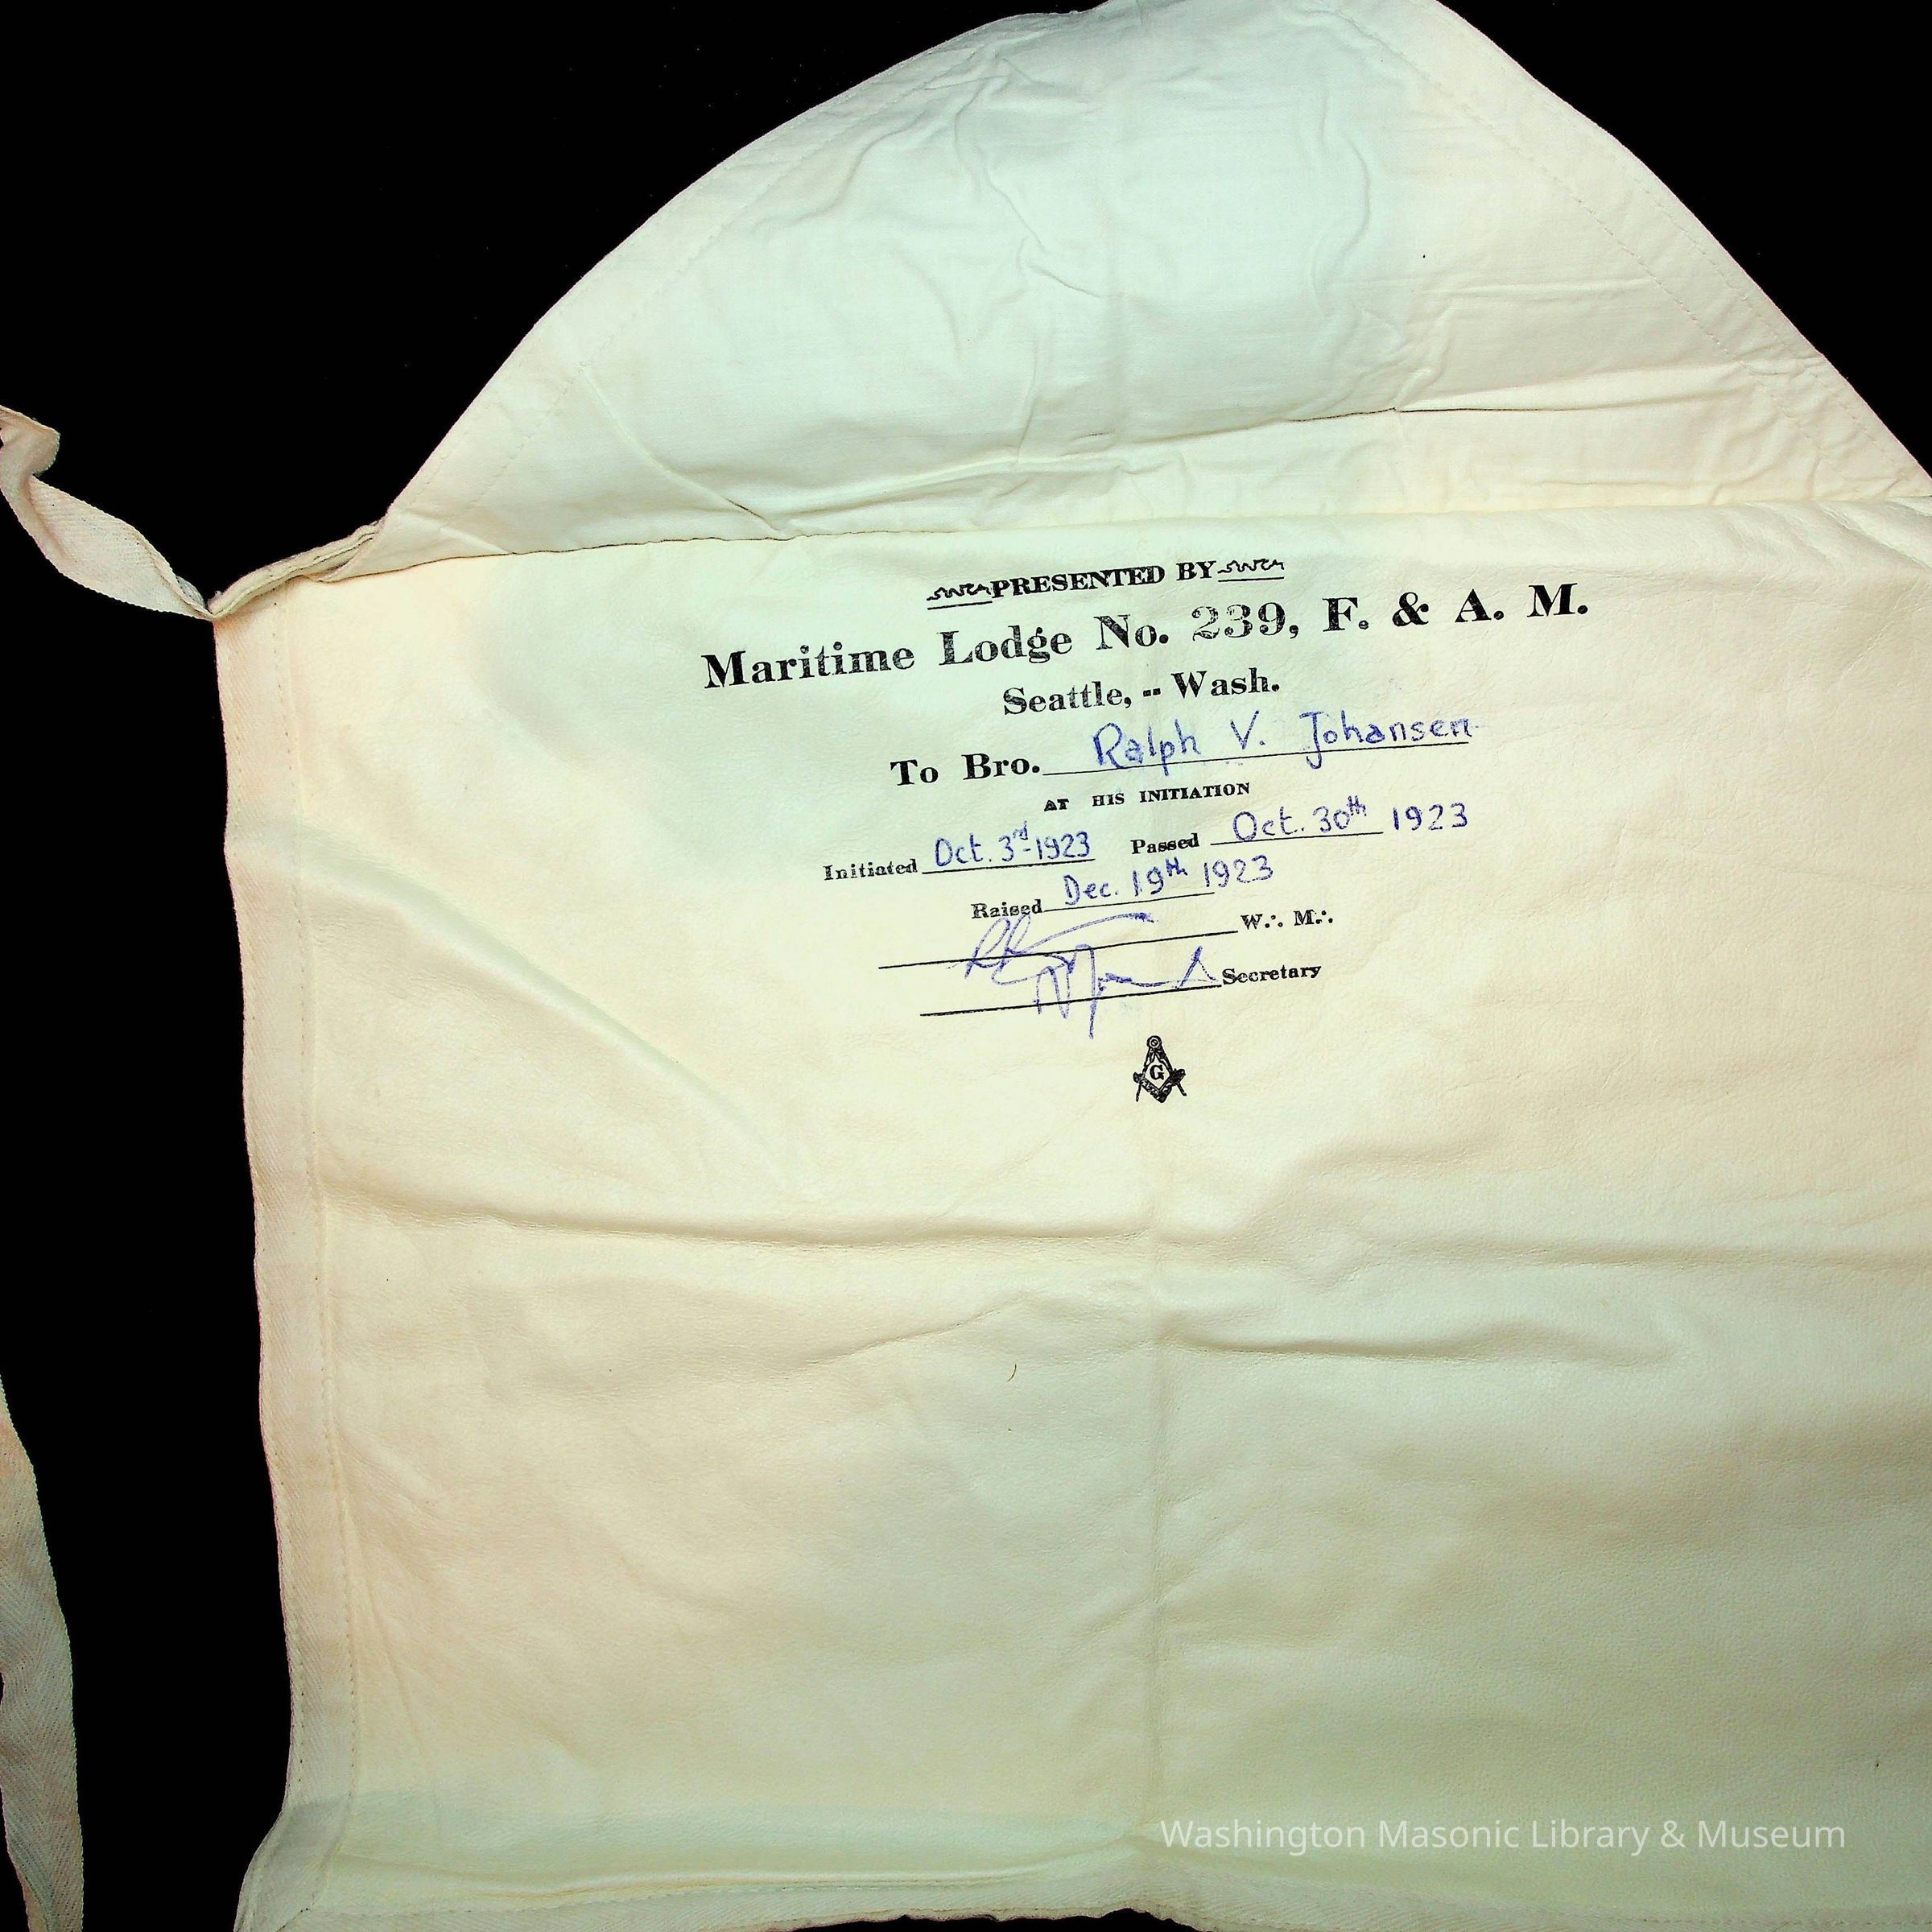 PRESENTED BY
Maritime Lodge No. 239, F. & A. M.
Seattle, -- Wash.
To Bro. Ralph V. Johansen
AT HIS INITIATION
Initiated Oct. 3rd-1923 Passed Oct. 30th 1923
Raised Dec. 19th 1923
W.∴ M.∴
Secretary
G
Washington Masonic Library & Museum